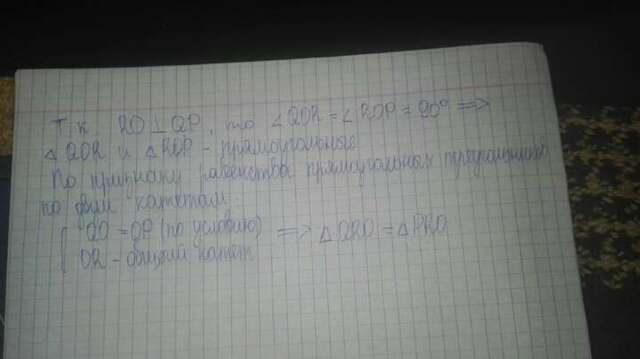 Т. к RO ⊥ QP, то ∠QOR = ∠ROP = 90° =>
△ QOR и △ ROP - прямоугольные.
По признаку равенства прямоугольных треугольников
по двум катетам:
{ QO = OP (по условию) => △ QRO = △ PRO
OR - общий катет